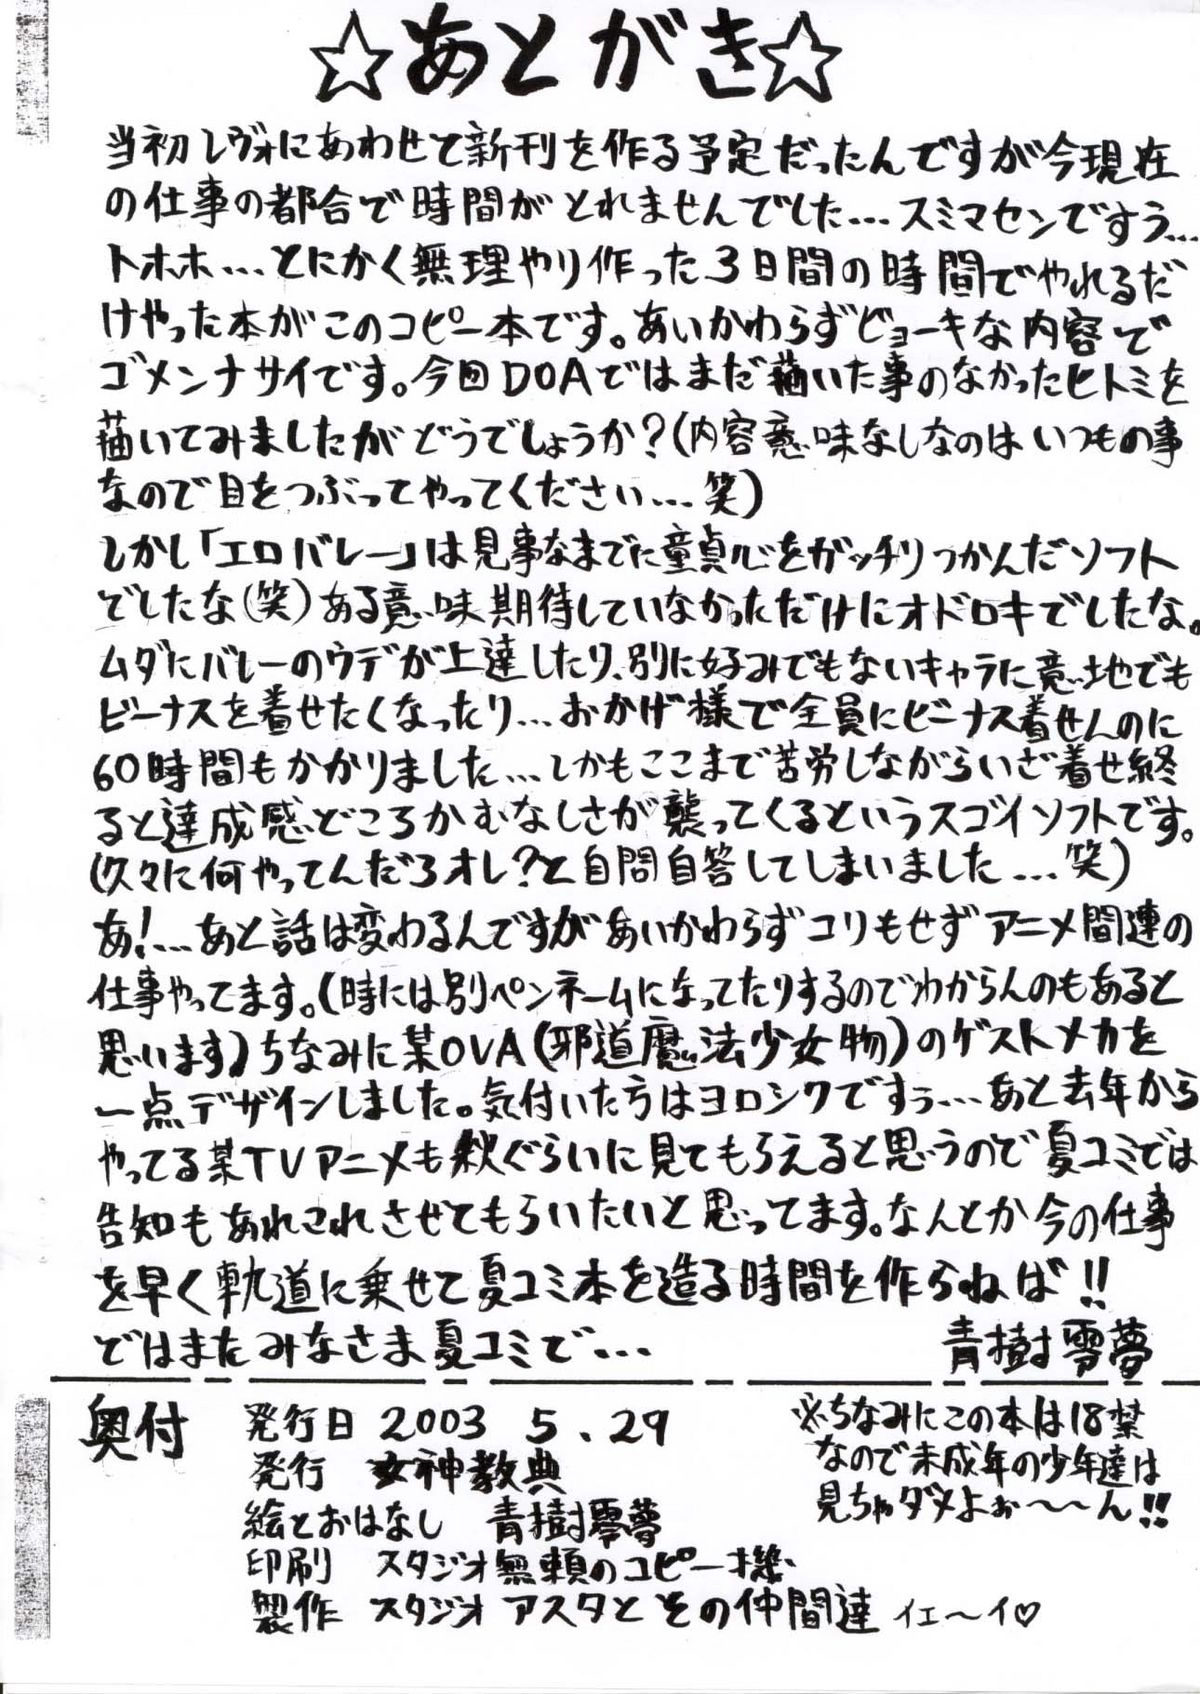 ☆あとがき☆
当初レヴォにあわせて新刊を作る予定だったんですが今現在
の仕事の都合で時間がとれませんでした…スミマセンですう…
トホホ…とにかく無理やり作った3日間の時間でやれるだ
けやった本がこのコピー本です。あいかわらずビョーキな内容で
ゴメンナサイです。今回DOAではまだ描いた事のなかったヒトミを
描いてみましたがどうでしょうか?(内容意味なしなのはいつもの事
なので目をつぶってやってください…笑)
しかし「エロバレー」は見事なまでに童貞心をガッチリつかんだソフト
でしたな(笑)ある意味期待していなかっただけにオドロキでしたな。
ムダにバレーのウデが上達したり、別に好みでもないキャラに意地でも
ビーナスを着せたくなったり…おかげ様で全員にビーナス着せんのに
60時間もかかりました…しかもここまで苦労しながらいざ着せ終
ると達成感どころかむなしさが襲ってくるというスゴイソフトです。
(久々に何やってんだろオレ?と自問自答してしまいました…笑)
あ!…あと話は変わるんですがあいかわらずコリもせずアニメ間連の
仕事やってます。(時には別ペンネームになってたりするのでわからんのもあると
思います)ちなみに某OVA(邪道魔法少女物)のゲストメカを
一点デザインしました。気付いた方はヨロシクですぅ…あと去年から
やってる某TVアニメも秋ぐらいに見てもらえると思うので夏コミでは
告知もあれされさせてもらいたいと思ってます。なんとか今の仕事
を早く軌道に乗せて夏コミ本を造る時間を作らねば!!
ではまたみなさま夏コミで…
青樹零夢
奥付
発行日 2003 5.29
発行 女神教典
絵とおはなし 青樹零夢
印刷 スタジオ無頼のコピー機
製作 スタジオアスタとその仲間達 イエ〜イ♡
※ちなみにこの本は18禁
なので未成年の少年達は
見ちゃダメよぉ〜〜ん!!